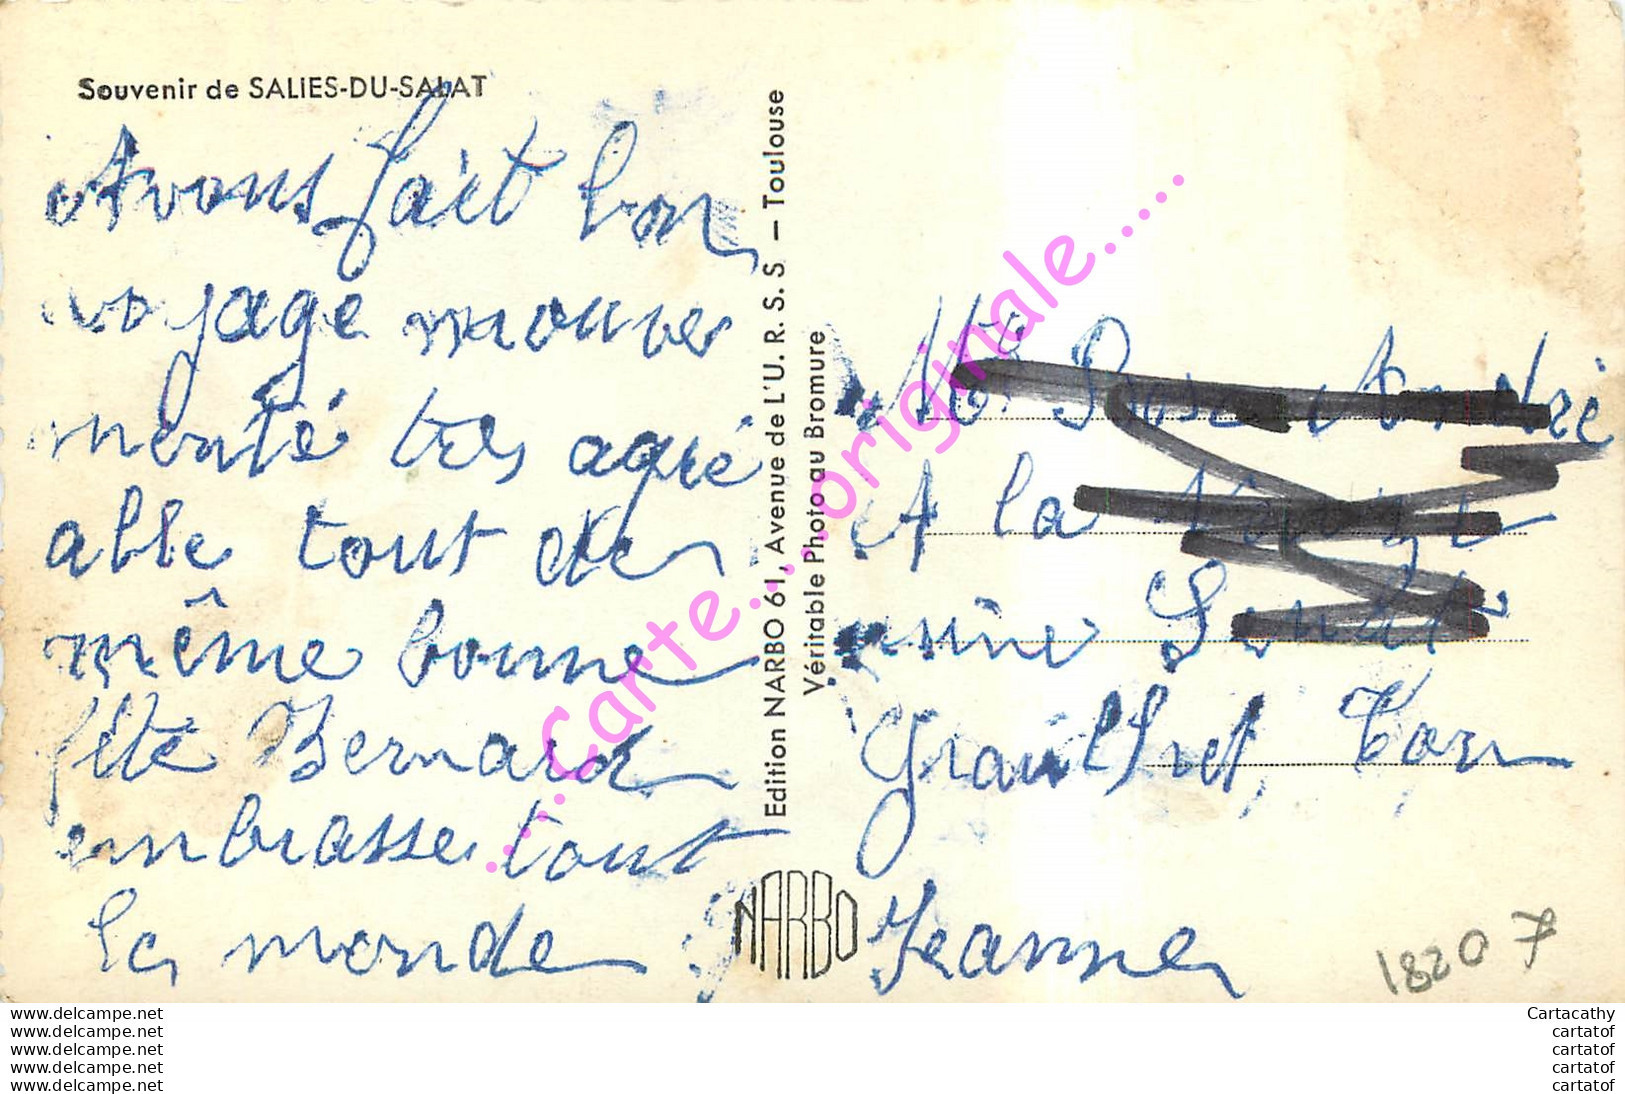 Souvenir de SALIES-DU-SALAT
Avons fait bon
voyage mouve
menté tres agré
able tout de
même bonne
fête Bernard
embrasse tout
le monde
Jeanne
Edition NARBO 61, Avenue de L'U.R.S.S - Toulouse
Véritable Photo au Bromure
NARBO
André
A la
usine
Graulhet, Tarn
....Carte....originale.....
18207
www.delcampe.net
www.delcampe.net
www.delcampe.net
www.delcampe.net
www.delcampe.net
Cartacathy
cartatof
cartatof
cartatof
cartatof